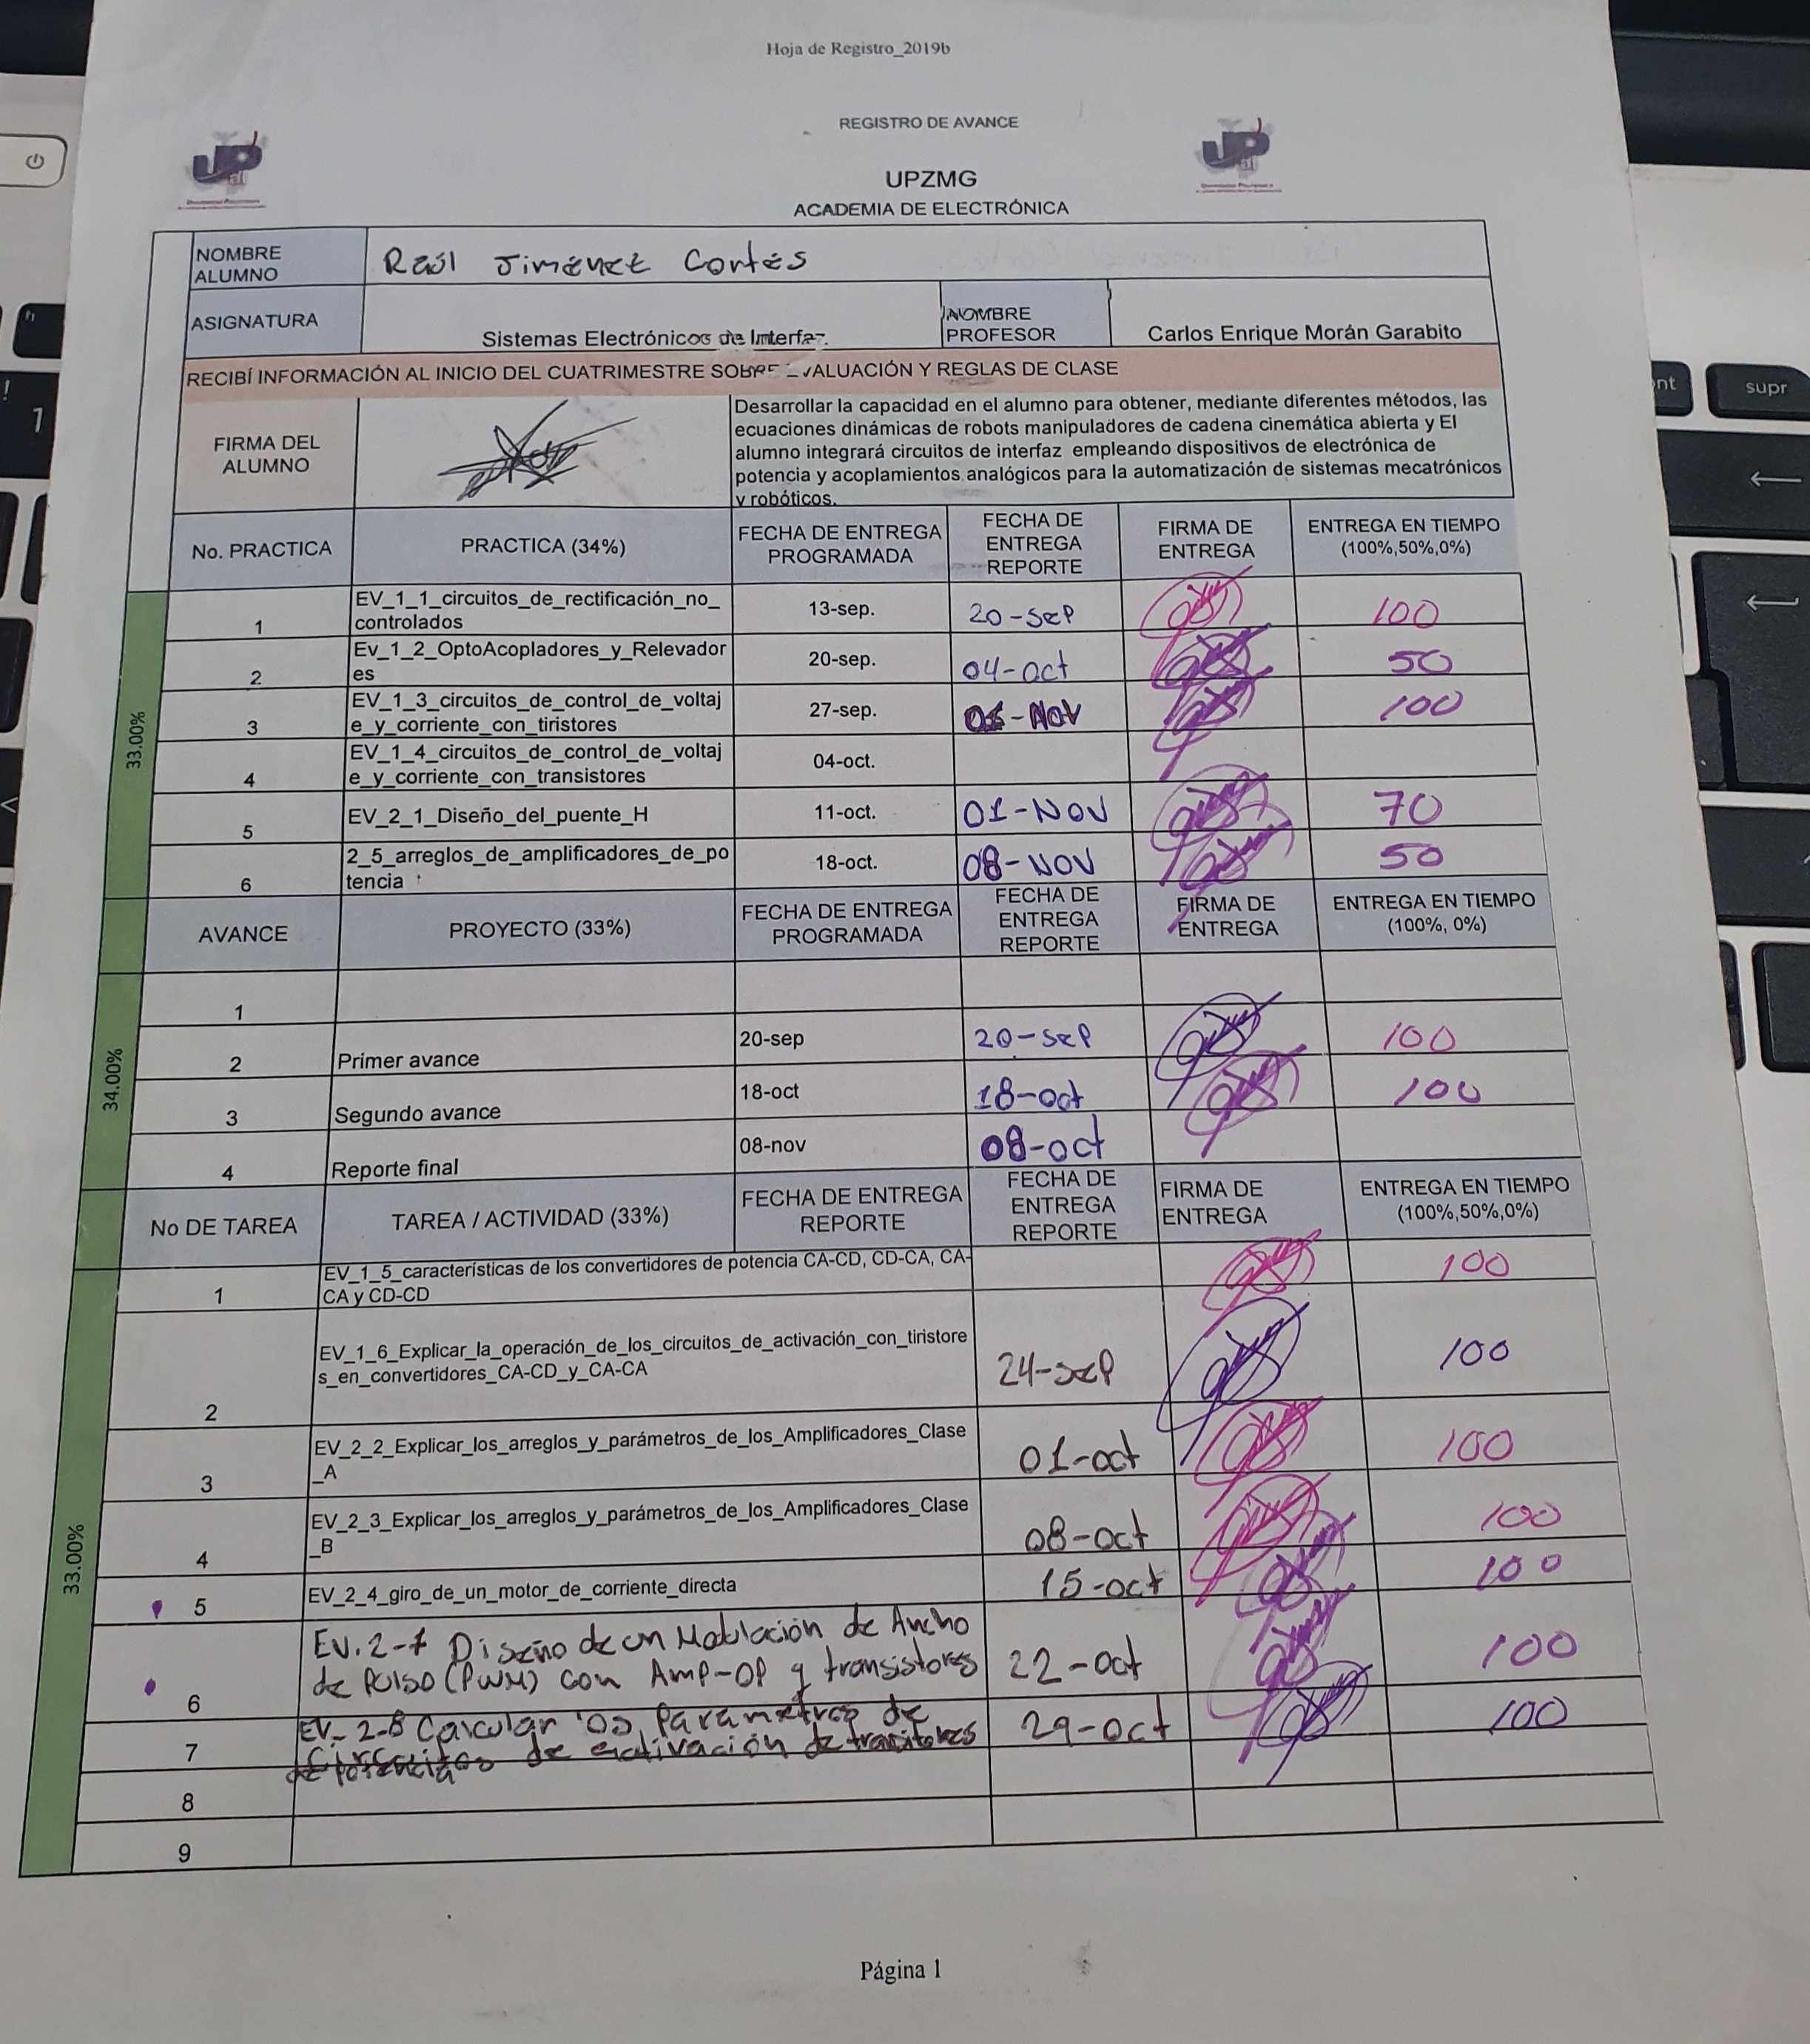 Hoja de Registro_2019b
REGISTRO DE AVANCE
UPZMG
ACADEMIA DE ELECTRÓNICA
NOMBRE
ALUMNO
Raúl Jiménez Cortés
ASIGNATURA
Sistemas Electrónicos de Interfaz.
NOMBRE
PROFESOR
Carlos Enrique Morán Garabito
RECIBÍ INFORMACIÓN AL INICIO DEL CUATRIMESTRE SOBRE EVALUACIÓN Y REGLAS DE CLASE
FIRMA DEL
ALUMNO
Desarrollar la capacidad en el alumno para obtener, mediante diferentes métodos, las
ecuaciones dinámicas de robots manipuladores de cadena cinemática abierta y El
alumno integrará circuitos de interfaz empleando dispositivos de electrónica de
potencia y acoplamientos analógicos para la automatización de sistemas mecatrónicos
y robóticos.
No. PRACTICA
PRACTICA (34%)
FECHA DE ENTREGA
PROGRAMADA
FECHA DE
ENTREGA
REPORTE
FIRMA DE
ENTREGA
ENTREGA EN TIEMPO
(100%,50%,0%)
33.00%
1
EV_1_1_circuitos_de_rectificación_no_
controlados
13-sep.
20-sep
100
2
Ev_1_2_OptoAcopladores_y_Relevador
es
20-sep.
04-oct
50
3
EV_1_3_circuitos_de_control_de_voltaj
e_y_corriente_con_tiristores
27-sep.
01-Nov
100
4
EV_1_4_circuitos_de_control_de_voltaj
e_y_corriente_con_transistores
04-oct.
5
EV_2_1_Diseño_del_puente_H
11-oct.
01-NOV
70
6
2_5_arreglos_de_amplificadores_de_po
tencia
18-oct.
08-NOV
50
AVANCE
PROYECTO (33%)
FECHA DE ENTREGA
PROGRAMADA
FECHA DE
ENTREGA
REPORTE
FIRMA DE
ENTREGA
ENTREGA EN TIEMPO
(100%, 0%)
34.00%
1
2
Primer avance
20-sep
20-sep
100
3
Segundo avance
18-oct
18-oct
100
4
Reporte final
08-nov
08-oct
No DE TAREA
TAREA / ACTIVIDAD (33%)
FECHA DE ENTREGA
REPORTE
FECHA DE
ENTREGA
REPORTE
FIRMA DE
ENTREGA
ENTREGA EN TIEMPO
(100%,50%,0%)
33.00%
1
EV_1_5_características de los convertidores de potencia CA-CD, CD-CA, CA-
CA y CD-CD
100
2
EV_1_6_Explicar_la_operación_de_los_circuitos_de_activación_con_tiristore
s_en_convertidores_CA-CD_y_CA-CA
24-sep
100
3
EV_2_2_Explicar_los_arreglos_y_parámetros_de_los_Amplificadores_Clase
_A
01-oct
100
4
EV_2_3_Explicar_los_arreglos_y_parámetros_de_los_Amplificadores_Clase
_B
08-oct
100
5
EV_2_4_giro_de_un_motor_de_corriente_directa
15-oct
100
6
EV.2-7 Diseño de un Modulación de Ancho
de Pulso (PWM) con Amp-OP y transistores
22-oct
100
7
EV_ 2-8 Calcular los Parametros de
circuitos de activación de transitores
de potencia
29-oct
100
8
9
Página 1
supr